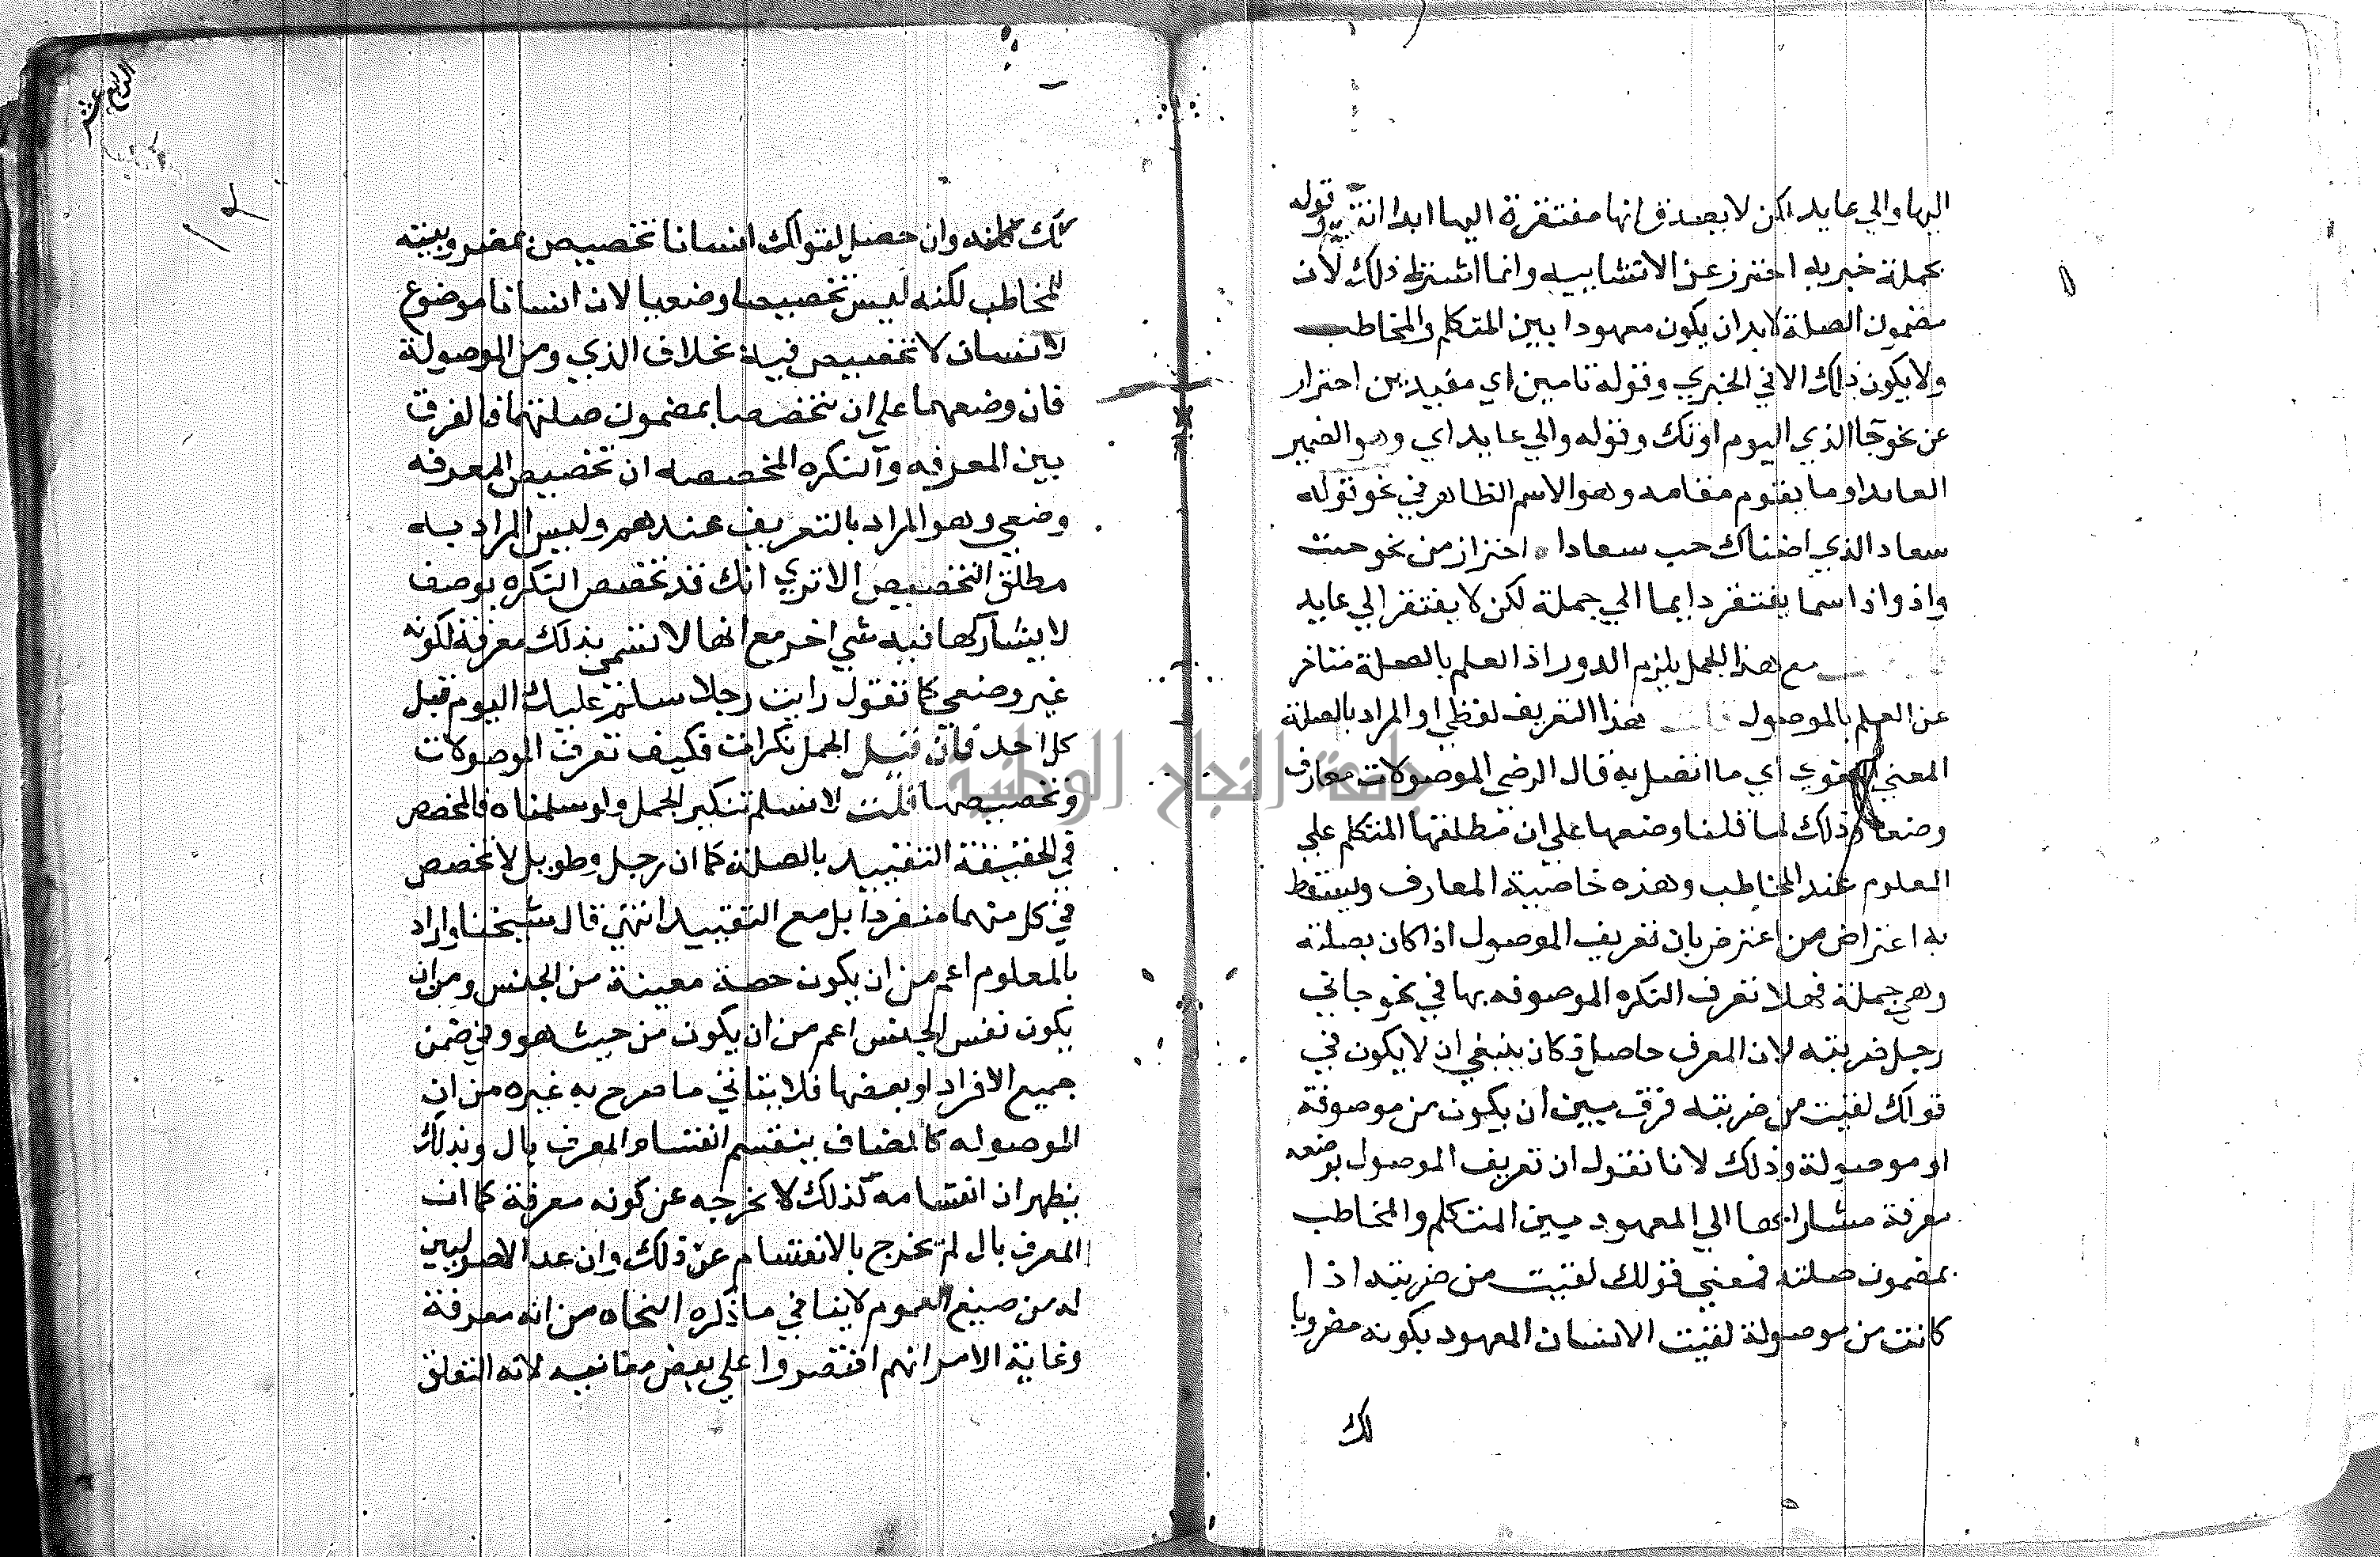 اليها والي عايد لكن لا يصدق انها مفتقرة اليها ابدا انتهي وقوله
بجملة خبريه احترز عن الانشاييه وانما اشترط ذلك لان
مضمون الصلة لابد ان يكون معهودا بين المتكلم والمخاطب
ولا يكون ذلك الا في الخبري وقوله تامين اي مفيدين احترار
عن نحو جا الذي اليوم او نك وقوله والي عايد اي وهو الضمير
العايد او ما يقوم مقامه وهو الاسم الظاهر في نحو قوله
سعاد الذي اضناك حب سعادا احتراز من نحو حيث
واذ واذا اسما يفتقر دايما الي جملة لكن لا يفتقر الي عايد
مع هذا الجمل يلزم الدور اذ العلم بالصلة متاخر
عن العلم بالموصول هذا التعريف لفظي او المراد بالصلة
المعني اللغوي اي ما اتصل به قال الرضي الموصولات معارف
وضعا وذلك لما قلنا وضعها علي ان يطلقها المتكلم علي
المعلوم عند المخاطب وهذه خاصية المعارف ويسقط
به اعتراض من اعترض بان تعريف الموصول اذا كان بصلته
وهي جملة فهلا تعرف النكره الموصوفه بها في نحو جاني
رجل ضربته لان المعرف حاصل فكان ينبغي ان لا يكون في
قولك لقيت من ضربته فرق بين ان يكون من موصوفة
او موصولة وذلك لانا نقول ان تعريف الموصول بوضعه
معرفة مشارا بها الي المعهود بين المتكلم والمخاطب
بمضمون صلته فمعني قولك لقيت من ضربته اذا
كانت من موصولة لقيت الانسان المعهود بكونه مضروبا
لك
الرابع عشر
لك وان حصل لقولك انسانا تخصيص بمضروبيته
للمخاطب لكنه ليس تخصيصا وضعيا لان انسانا موضوع
لانسان لا تخصيص فيه بخلاف الذي ومن الموصولة
فان وضعهما علي ان يتخصصا بمضمون صلتهما فالفرق
بين المعرفه والنكره المخصصه ان تخصيص المعرفه
وضعي وهو المراد بالتعريف عندهم وليس المراد به
مطلق التخصيص الا تري انك قد تخصص النكره بوصف
لا يشاركها فيه شي اخر مع انها لا تسمي بذلك معرفة لكونه
غير وضعي كما تقول رايت رجلا سلم عليك اليوم قبل
كل احد فان قيل الجمل نكرات فكيف تعرف الموصولات
وتخصيصها قلت لا نسلم تنكير الجمل ولو سلمناه فالمخصص
في الحقيقة التقييد بالصلة كما ان رجل وطويل لا تخصص
في كل منهما منفردا بل مع التقييد انتهي قال شيخنا واراد
بالمعلوم اعم من ان يكون حصة معينة من الجنس ومن ان
يكون نفس الجنس اعم من ان يكون من حيث هو وفي ضمن
جميع الافراد او بعضها فلا ينافي ما صرح به غيره من ان
الموصوله كالمضاف ينقسم انقسام المعرف بال وبذلك
يظهر ان انقسامه كذلك لا يخرجه عن كونه معرفة كما ان
المعرف بال لم يخرج بالانقسام عن ذلك وان عد الاصوليين
له من صيغ العموم لا ينافي ما ذكره النحاه من انه معرفة
وغاية الامر انهم اقتصروا علي بعض معانيه لانه التعلق
جامعة النجاح الوطنية